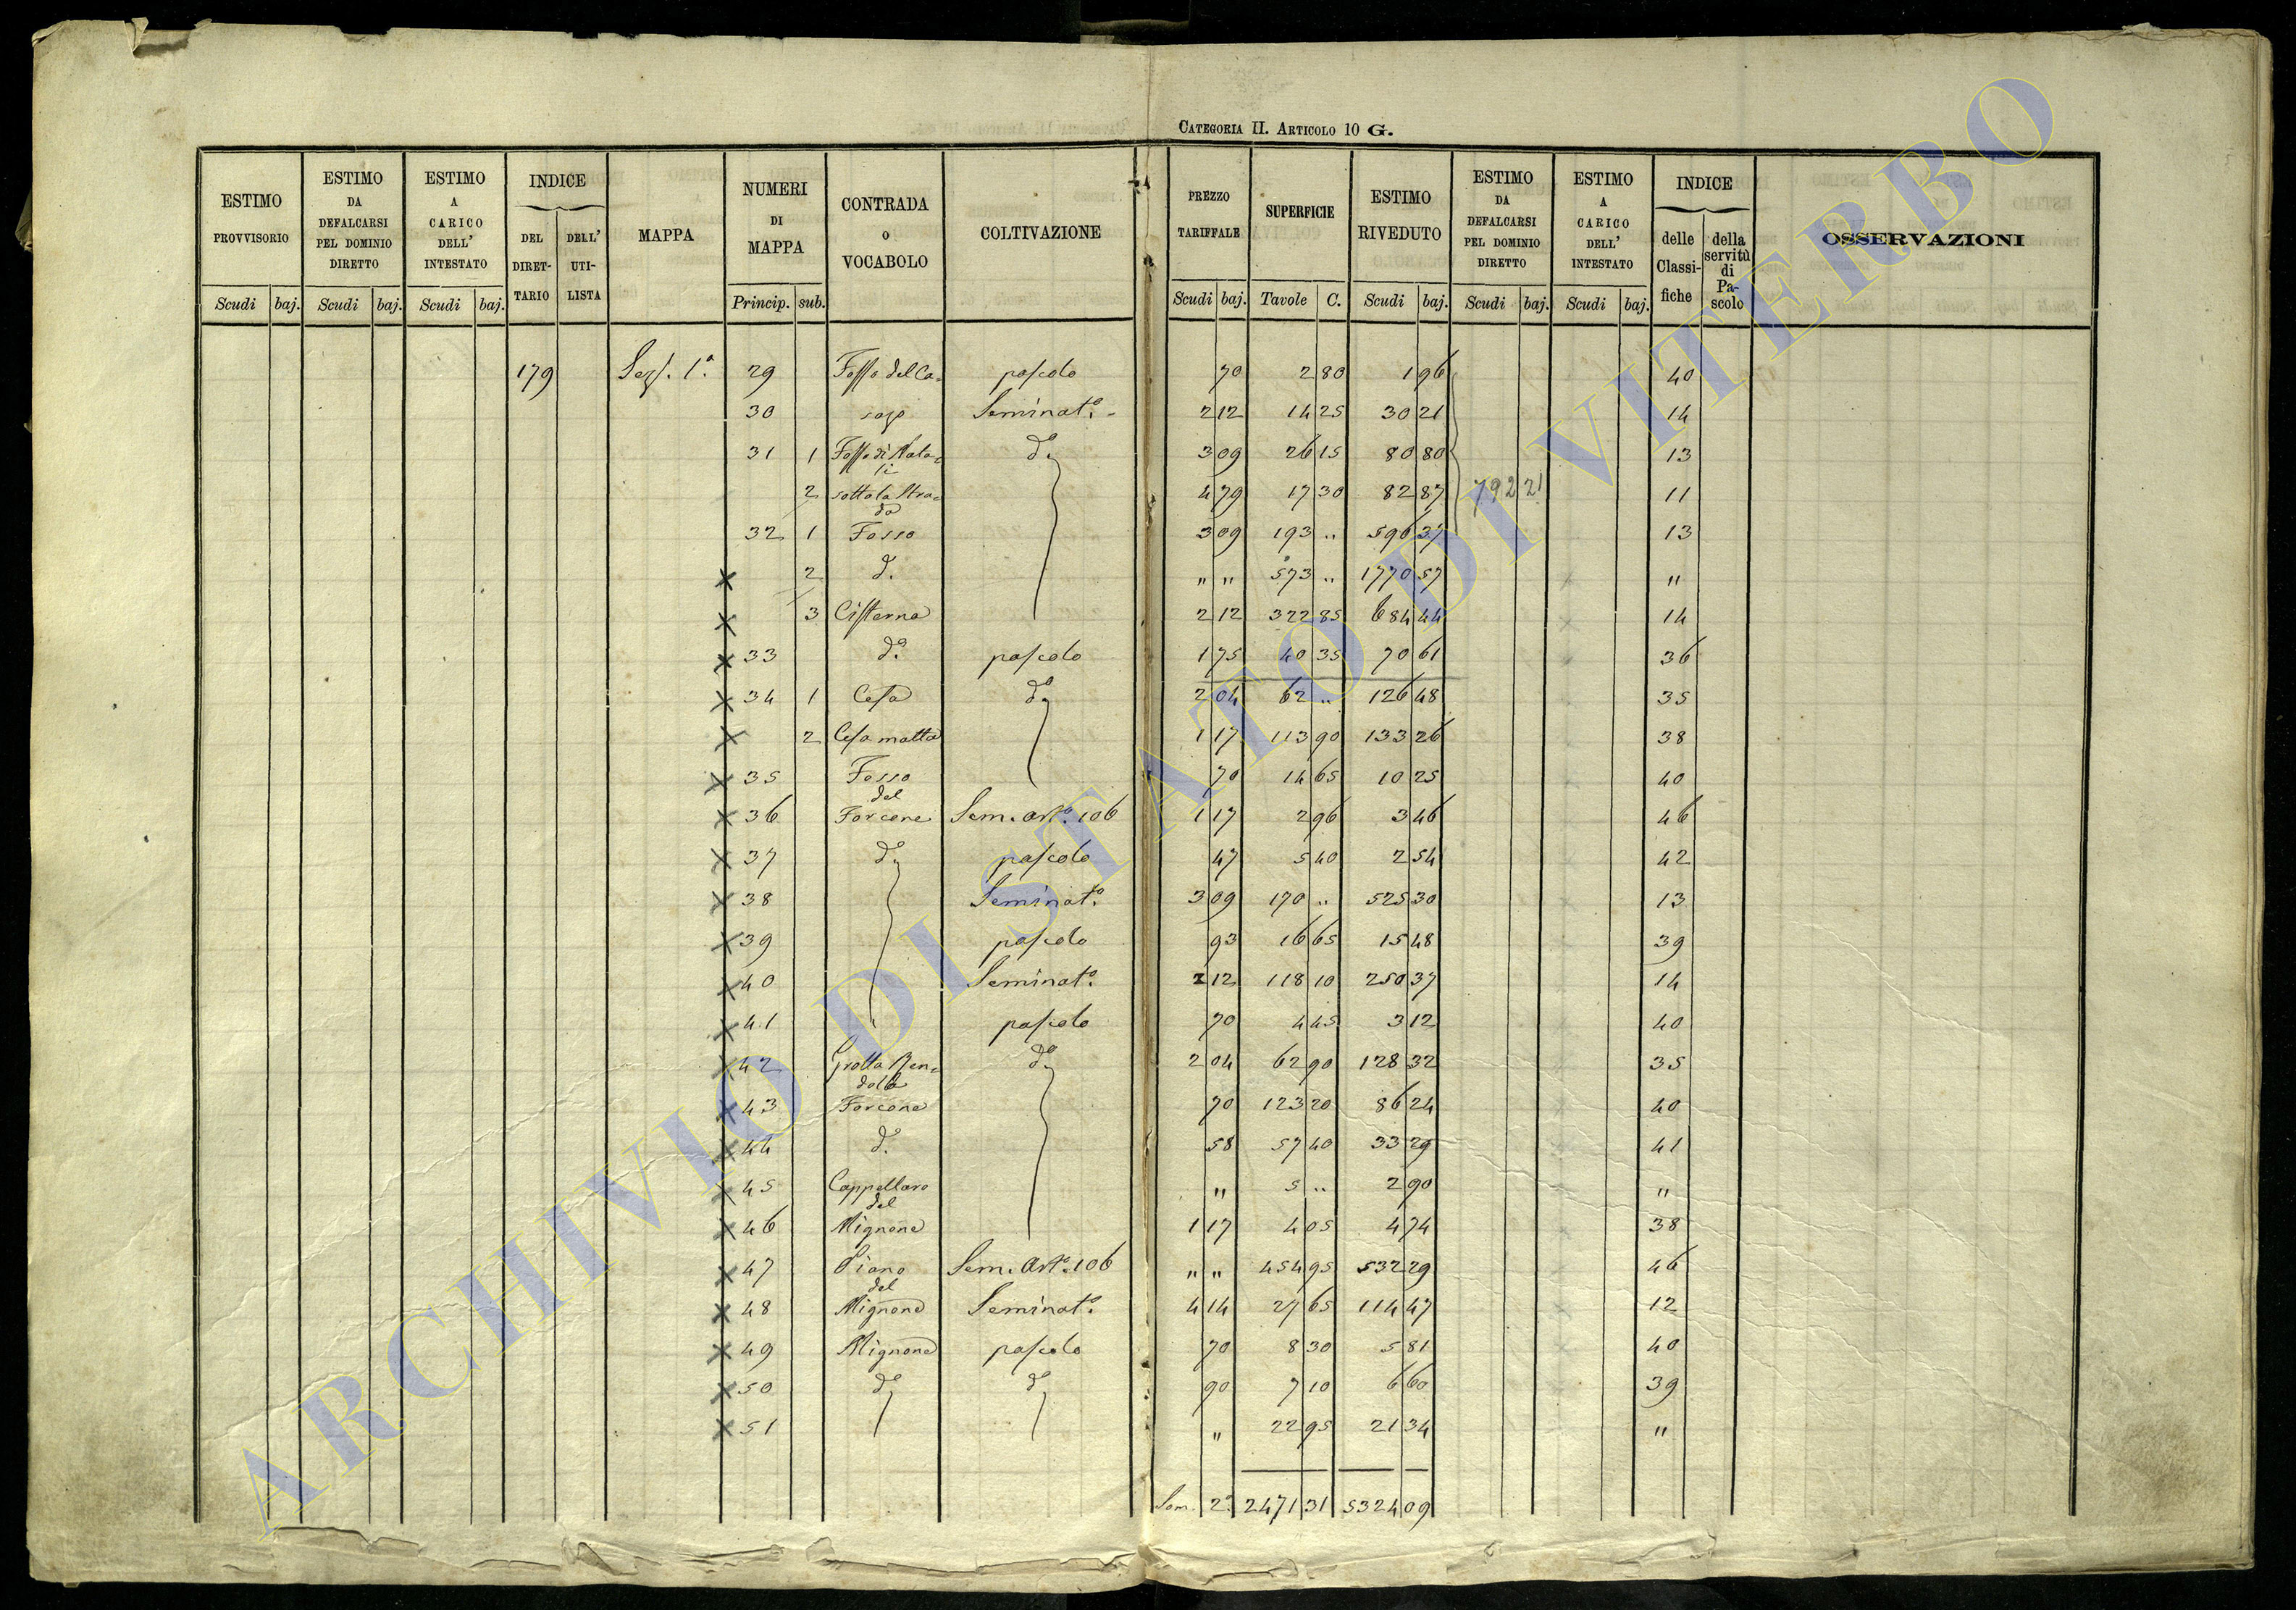 CATEGORIA II. ARTICOLO 10 G.
ESTIMO PROVVISORIO Scudi baj. | ESTIMO DA DEFALCARSI PEL DOMINIO DIRETTO Scudi baj. | ESTIMO A CARICO DELL' INTESTATO Scudi baj. | INDICE DEL DIRET- TARIO | DELL' UTI- LISTA | MAPPA | NUMERI DI MAPPA Princip. sub. | CONTRADA O VOCABOLO | COLTIVAZIONE | PREZZO TARIFFALE Scudi baj. | SUPERFICIE Tavole C. | ESTIMO RIVEDUTO Scudi baj. | ESTIMO DA DEFALCARSI PEL DOMINIO DIRETTO Scudi baj. | ESTIMO A CARICO DELL' INTESTATO Scudi baj. | INDICE delle Classi- fiche | della servitù di Pa- scolo | OSSERVAZIONI
179 Sez. 1ª 29 Fosso del Ca- pascolo 70 2 80 1 96 40
30 Seminat.º 2 12 14 25 30 21 14
31 1 Fosso di d.º 3 09 26 15 80 80 13
2 sotto la Stra- da 4 79 17 30 82 87 792 21 11
32 1 Fosso 3 09 193 " 596 37 13
2 d.º " " 573 " 1770 57 "
3 Cisterna 2 12 322 85 684 44 14
33 d.º pascolo 1 75 40 35 70 61 36
34 1 Cesa d.º 2 04 62 " 126 48 35
2 Cesa matta 1 17 113 90 133 26 38
35 Fosso 70 14 65 10 25 40
36 del Forcone Sem. Art.º 106 1 17 2 96 3 46 46
37 d.º pascolo 47 5 40 2 54 42
38 Seminat.º 3 09 170 " 525 30 13
39 pascolo 93 16 65 15 48 39
40 Seminat.º 2 12 118 10 250 37 14
41 pascolo 70 4 45 3 12 40
42 Grotta d.º 2 04 62 90 128 32 35
43 Forcone 70 123 20 86 24 40
44 d.º 58 57 40 33 29 41
45 Cappellaro " 5 " 2 90 "
46 del Mignone 1 17 4 05 4 74 38
47 Piano Sem. Art.º 106 " " 454 95 532 29 46
48 del Mignone Seminat.º 4 14 27 65 114 47 12
49 Mignone pascolo 70 8 30 5 81 40
50 d.º d.º 90 7 10 6 60 39
51 " 22 95 21 34 "
Som. 2ª 2471 31 5324 09
ARCHIVIO DI STATO DI VITERBO